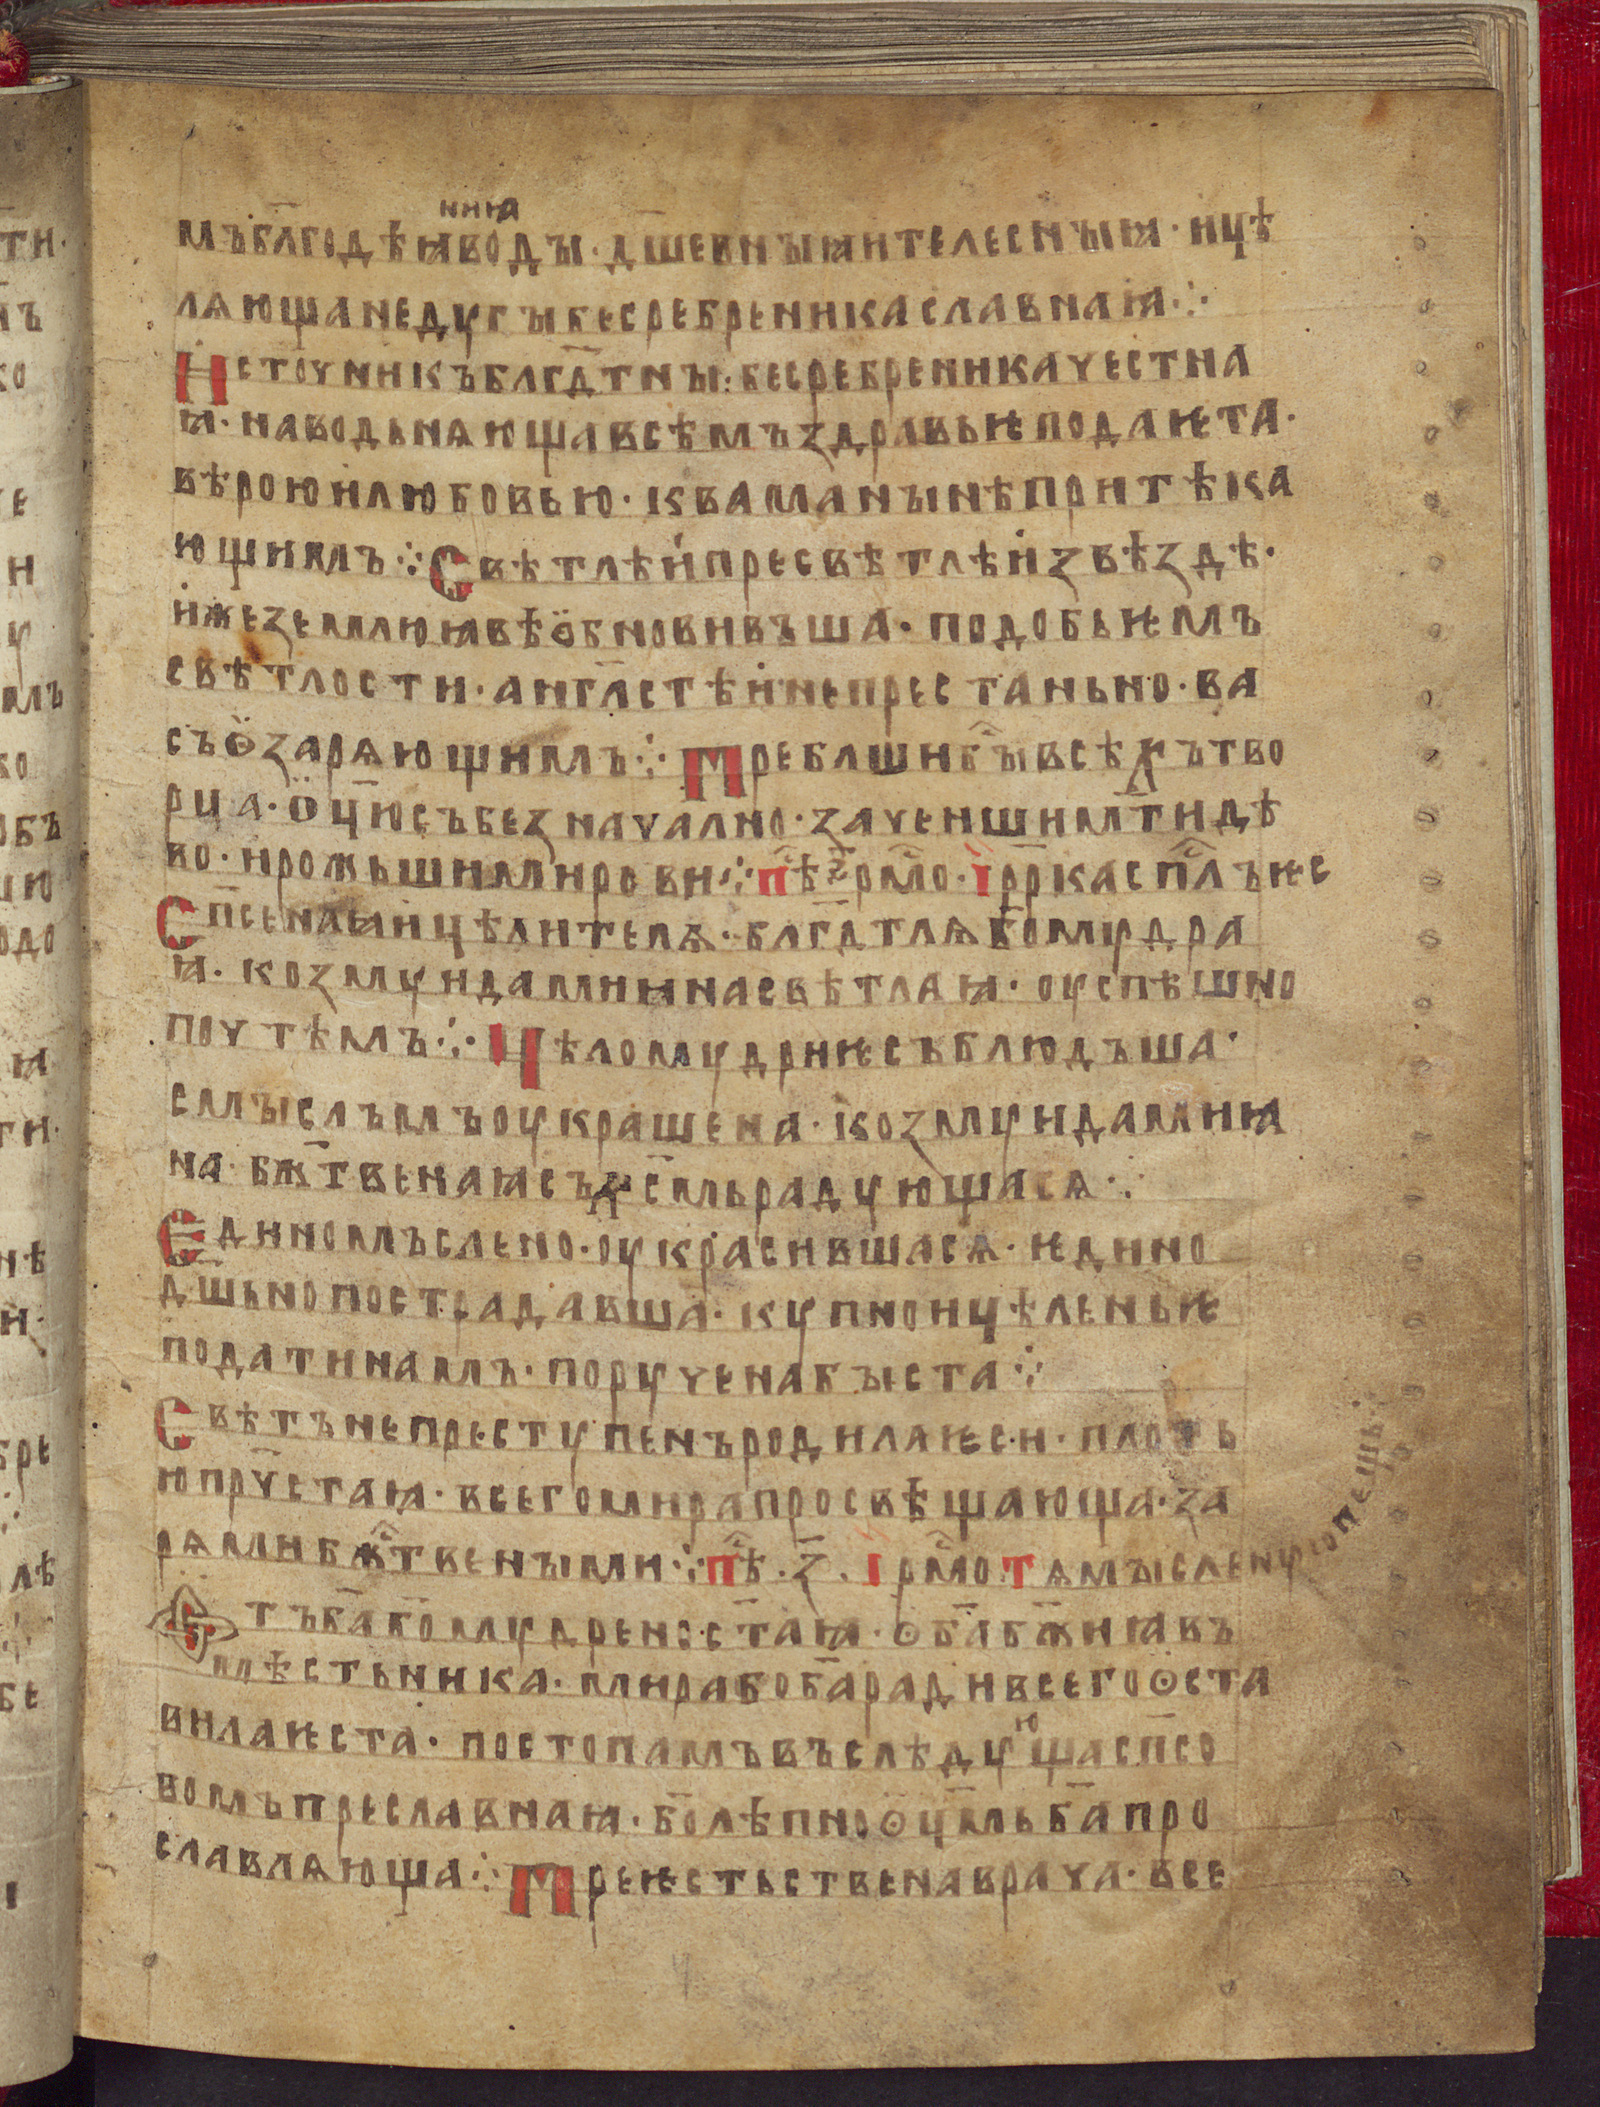 мъбл҃годѣꙗниꙗводꙑ · дш҃евнꙑꙗителеснꙑꙗ · ицѣ
лѧющанедугꙑбесребреникаславнаꙗ ⁘
Источникъблгⷣтнꙑ : бесребреникачестна
ꙗ · наводьнѧющавсѣмъздравьѥподаѥта ·
вѣроюилюбовью · кваманꙑнѣпритѣка
ющимъ ⁘ Свѣтлѣипресвѣтлѣизвѣздѣ ·
ижеземлюꙗвѣобновивъша · подобьѥмъ
свѣтлости · анг҃лстѣинепрестаньно · ва
съозарѧющимъ ⁘ Преблшибⷭ҇ꙑвсѣхътво
рца · оц҃юсъбезначално · заченшимт҃идѣ
во · ирожьшимирови ⁘ пⷭ҇ѣ · ꙅ҃ · рмⷭ҇о · їр҃ркаспⷭ҇лъѥс
Сп҃сенаꙗицѣлителѧ · блгⷣтлѧб҃омудра
ꙗ · козмуидамиꙗнасвѣтлаꙗ · оуспѣшно
почтѣмъ ⁘ Цѣломудриѥсъблюдъша ·
смꙑслъмъоукрашена · козмуидамиꙗ
на · бж҃твенаꙗсъдсп҃мьрадующасѧ ⁘
Единомъслено · оукрасившасѧ · ѥдино
дш҃ьнопострадавша · купноицѣленьѥ
податинамъ · поручена бꙑста ⁘
Свѣтънепреступенъродилаѥси · плоть
юпрч҃стаꙗ · всегомирапросвѣщающа · за
рѧмибжⷭ҇твенꙑми ⁘ пⷭ҇ѣ · з҃ · їрмⷭ҇о · Тѧмꙑсленуюпещь
Отъб҃аб҃омудренос҃таꙗ · об҃аб҃жиꙗвъ
мѣстьника · мирабоб҃арадивсегооста
вилаѥста · постопамъвъслѣдующасп҃со
вомъпреславнаꙗ · бо҃лѣпнооц҃мьб҃апро
славлѧюща ⁘ Преѥстьственаврача · все